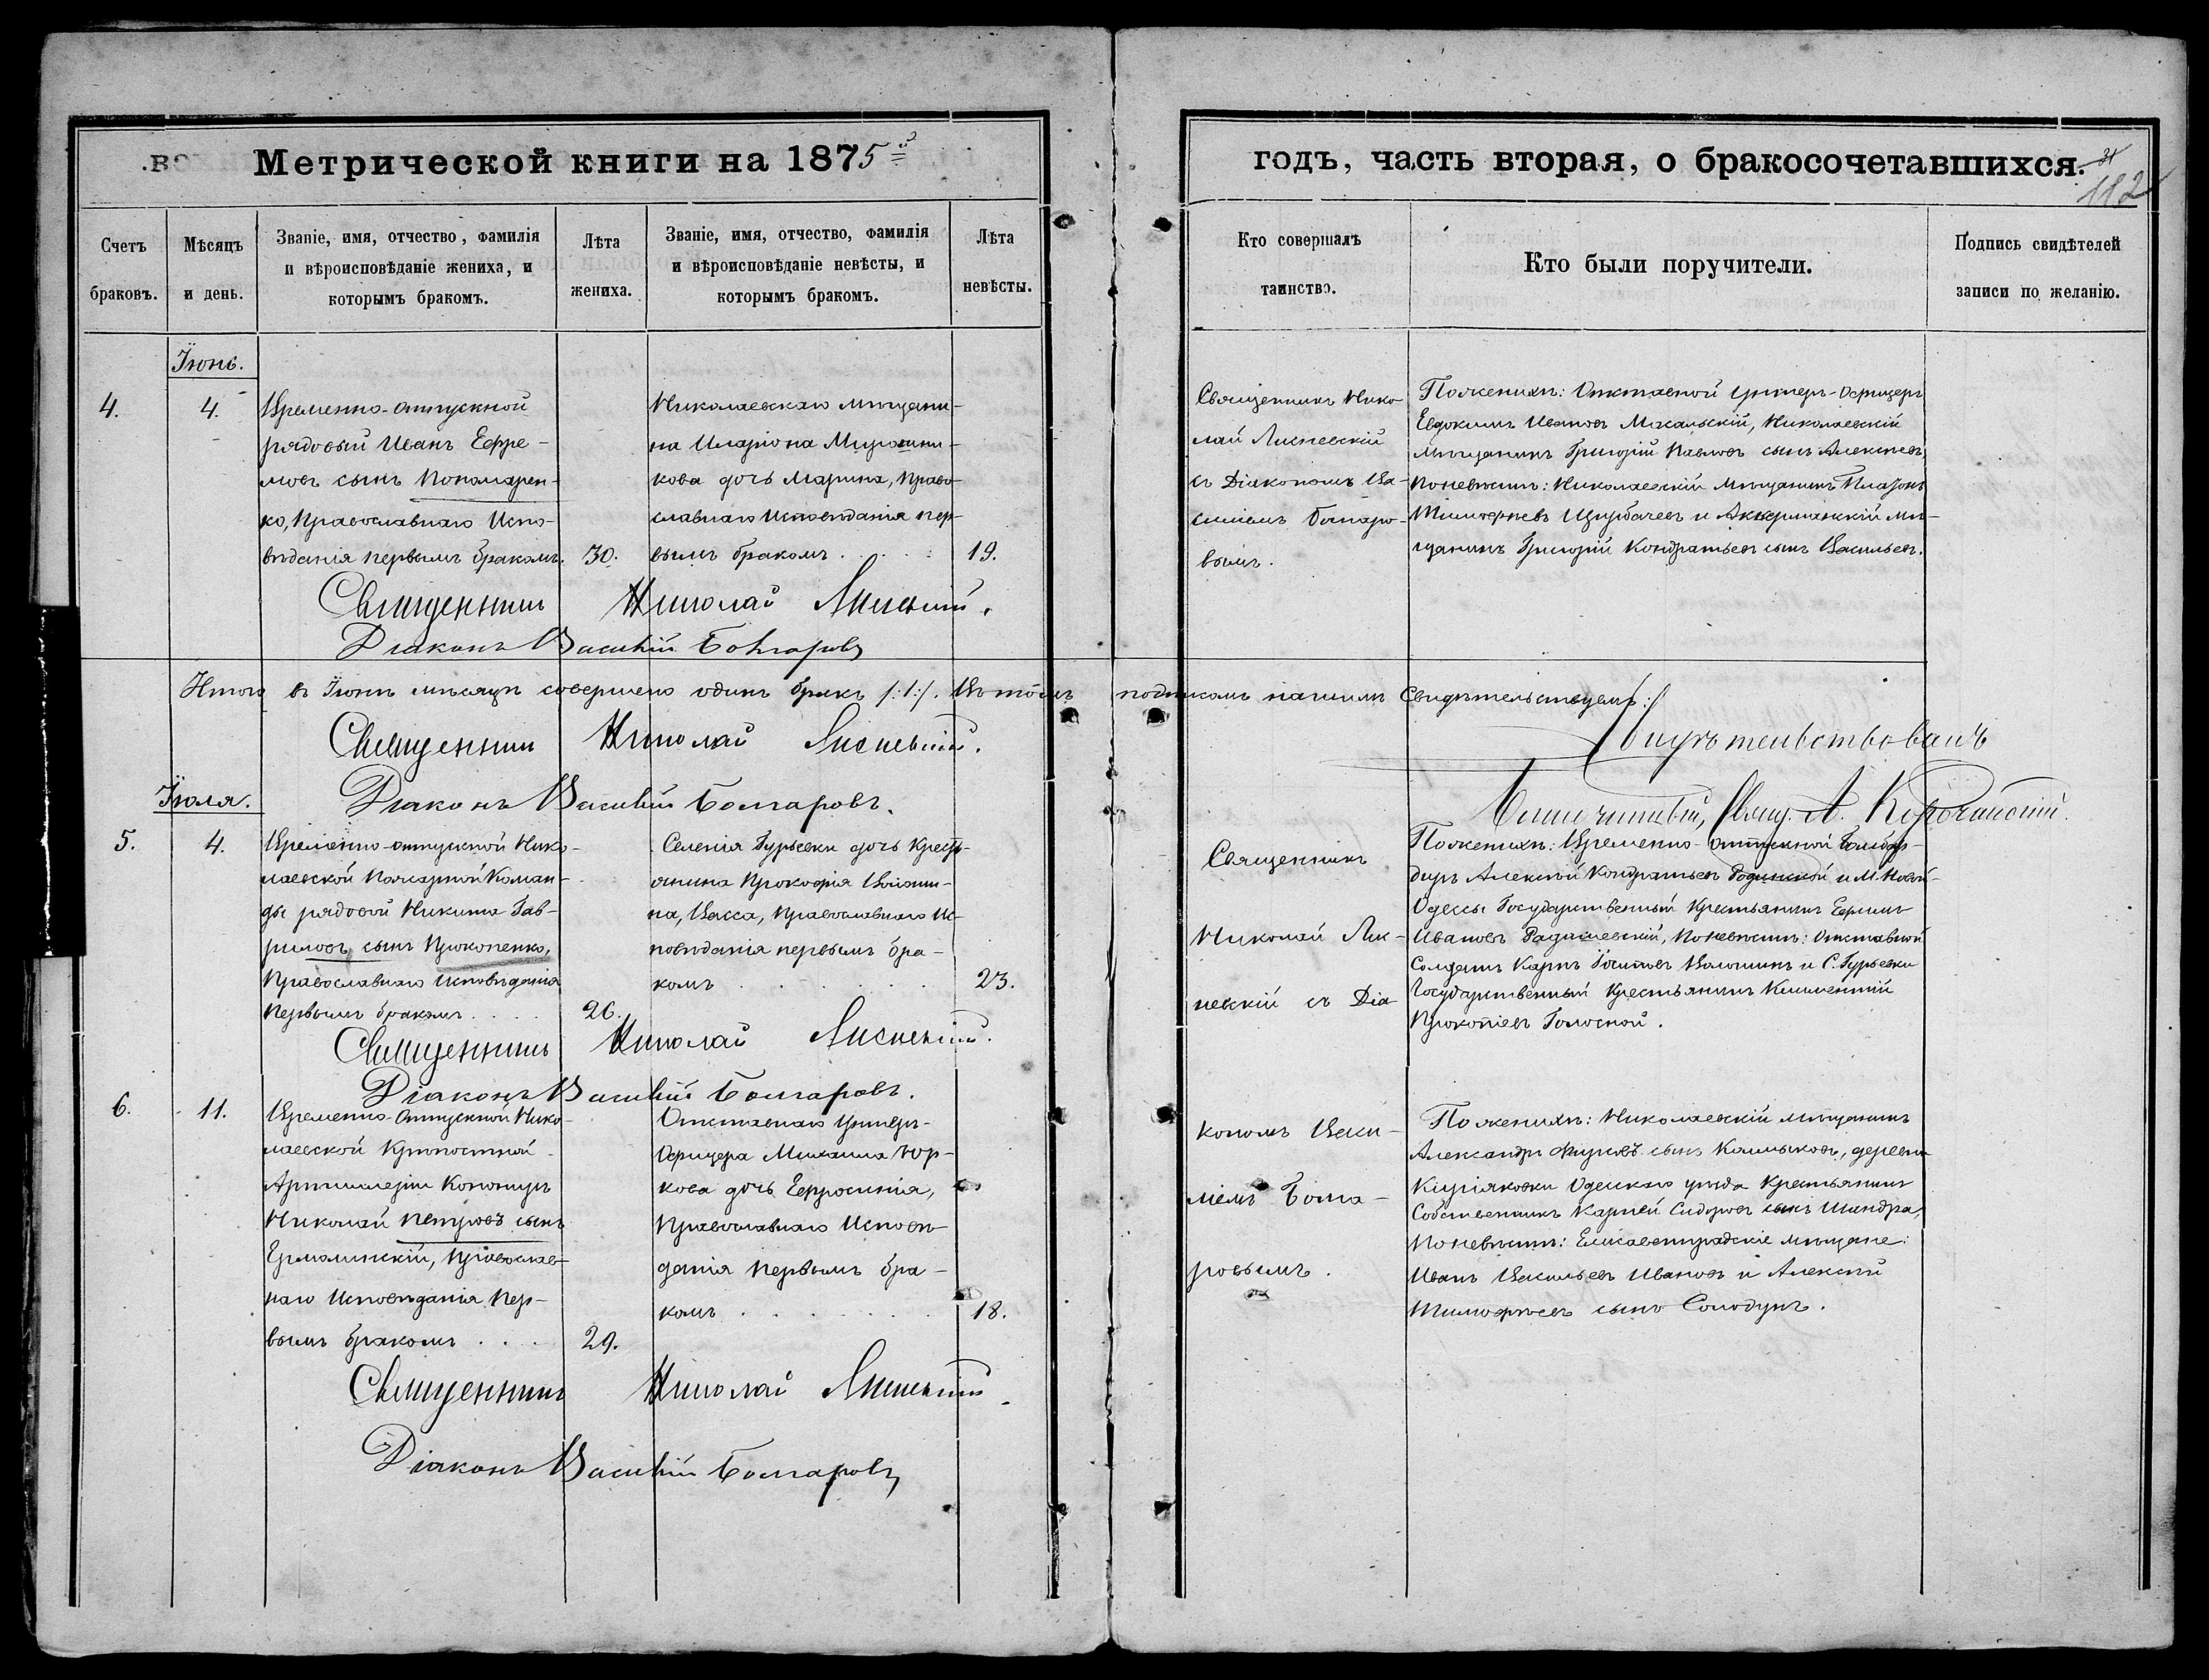 Метрической книги на 1875й
годъ, часть вторая, о бракосочетавшихся.
31
112
Счетъ браковъ.
Мѣсяцъ и день.
Званіе, имя, отчество, фамилія
и вѣроисповѣданіе жениха, и
которымъ бракомъ.
Лѣта
жениха.
Званіе, имя, отчество, фамилія
и вѣроисповѣданіе невѣсты, и
которымъ бракомъ.
Лѣта
невѣсты.
Кто совершалъ
таинство.
Кто были поручители.
Подпись свидѣтелей
записи по желанію.
Іюнь.
4.
4.
Временно-отпускной
рядовый Иванъ Ефре-
мовъ сынъ Пономарен-
ко, Православнаго Испо-
вѣданія первымъ бракомъ.
30.
Николаевскаго мѣщани-
на Иларіона Мирошни-
кова дочь Марина, Право-
славнаго Исповѣданія пер-
вымъ бракомъ . . . .
19.
Священникъ Нико-
лай Лисневскій
съ Діакономъ Ва-
силіемъ Болгаро-
вымъ.
По женихѣ: Отставной Унтеръ-Офицеръ
Евдокимъ Ивановъ Мокальскій, Николаевскій
мѣщанинъ Григорій Павловъ сынъ Алексѣевъ,
По невѣстѣ: Николаевскій мѣщанинъ Платонъ
Тимофеевъ Щербачевъ и Аккерманскій мѣ-
щанинъ Григорій Кондратьевъ сынъ Васильевъ.
Священникъ Николай Лисневскій.
Діаконъ Василій Болгаровъ
Итого въ Іюнѣ мѣсяцѣ совершено одинъ бракъ /:1:/. Въ томъ подписомъ нашимъ Свидѣтельствуемъ:/
Священникъ Николай Лисневскій.
Діаконъ Василій Болгаровъ.
Свидѣтельствовалъ
Благочинный, Свящ. А. Корочанскій.
Іюля.
5.
4.
Временно-отпускной Нико-
лаевской Пожарной Коман-
ды рядовой Никита Гав-
риловъ сынъ Прокопенко,
Православнаго исповѣданія
первымъ бракомъ . . . .
26.
Селенія Гурьевки дочь Кресть-
янина Прокофія Волоши-
на, Васса, Православнаго Ис-
повѣданія первымъ бра-
комъ . . . . . .
23.
Священникъ
Николай Лис-
невскій съ Діа-
кономъ Васи-
ліемъ Болга-
ровымъ.
По женихѣ: Временно-отпускной Бомбар-
диръ Алексѣй Кондратьевъ Родинской и М. Новой-
Одессы Государственный Крестьянинъ Ефимъ
Ивановъ Радишевскій, По невѣстѣ: Отставной
Солдатъ Карпъ Іосифовъ Волошинъ и С. Гурьевки
Государственный Крестьянинъ Климентій
Прокопіевъ Голосной.
Священникъ Николай Лисневскій.
Діаконъ Василій Болгаровъ.
6.
11.
Временно-Отпускной Нико-
лаевской Крѣпостной
Артиллеріи Канониръ
Николай Петровъ сынъ
Ермолинскій, Православ-
наго Исповѣданія Пер-
вымъ бракомъ . . . .
29.
Отставнаго Унтеръ-
Офицера Михаила Юр-
кова дочь Евфросинія,
Православнаго Исповѣ-
данія первымъ бра-
комъ . . . . . .
18.
По женихѣ: Николаевскій мѣщанинъ
Александръ сынъ Колмыковъ, деревни
Киріяковки Одесскаго уѣзда Крестьянинъ
Собственникъ Карпѣй Сидоровъ сынъ Шиндра,
По невѣстѣ: Елисаветградскіе мѣщане:
Иванъ Васильевъ Ивановъ и Алексѣй
Тимофѣевъ сынъ Солодунъ.
Священникъ Николай Лисневскій
Діаконъ Василій Болгаровъ